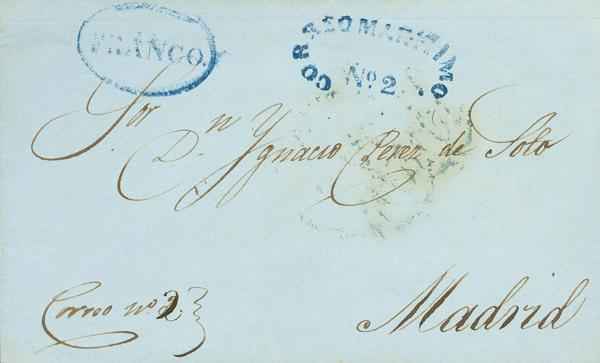 FRANCO.
CORREO MARITIMO
Nº 2.
Sor Dn Ygnacio Perez de Solo
Correo nº 2.
Madrid